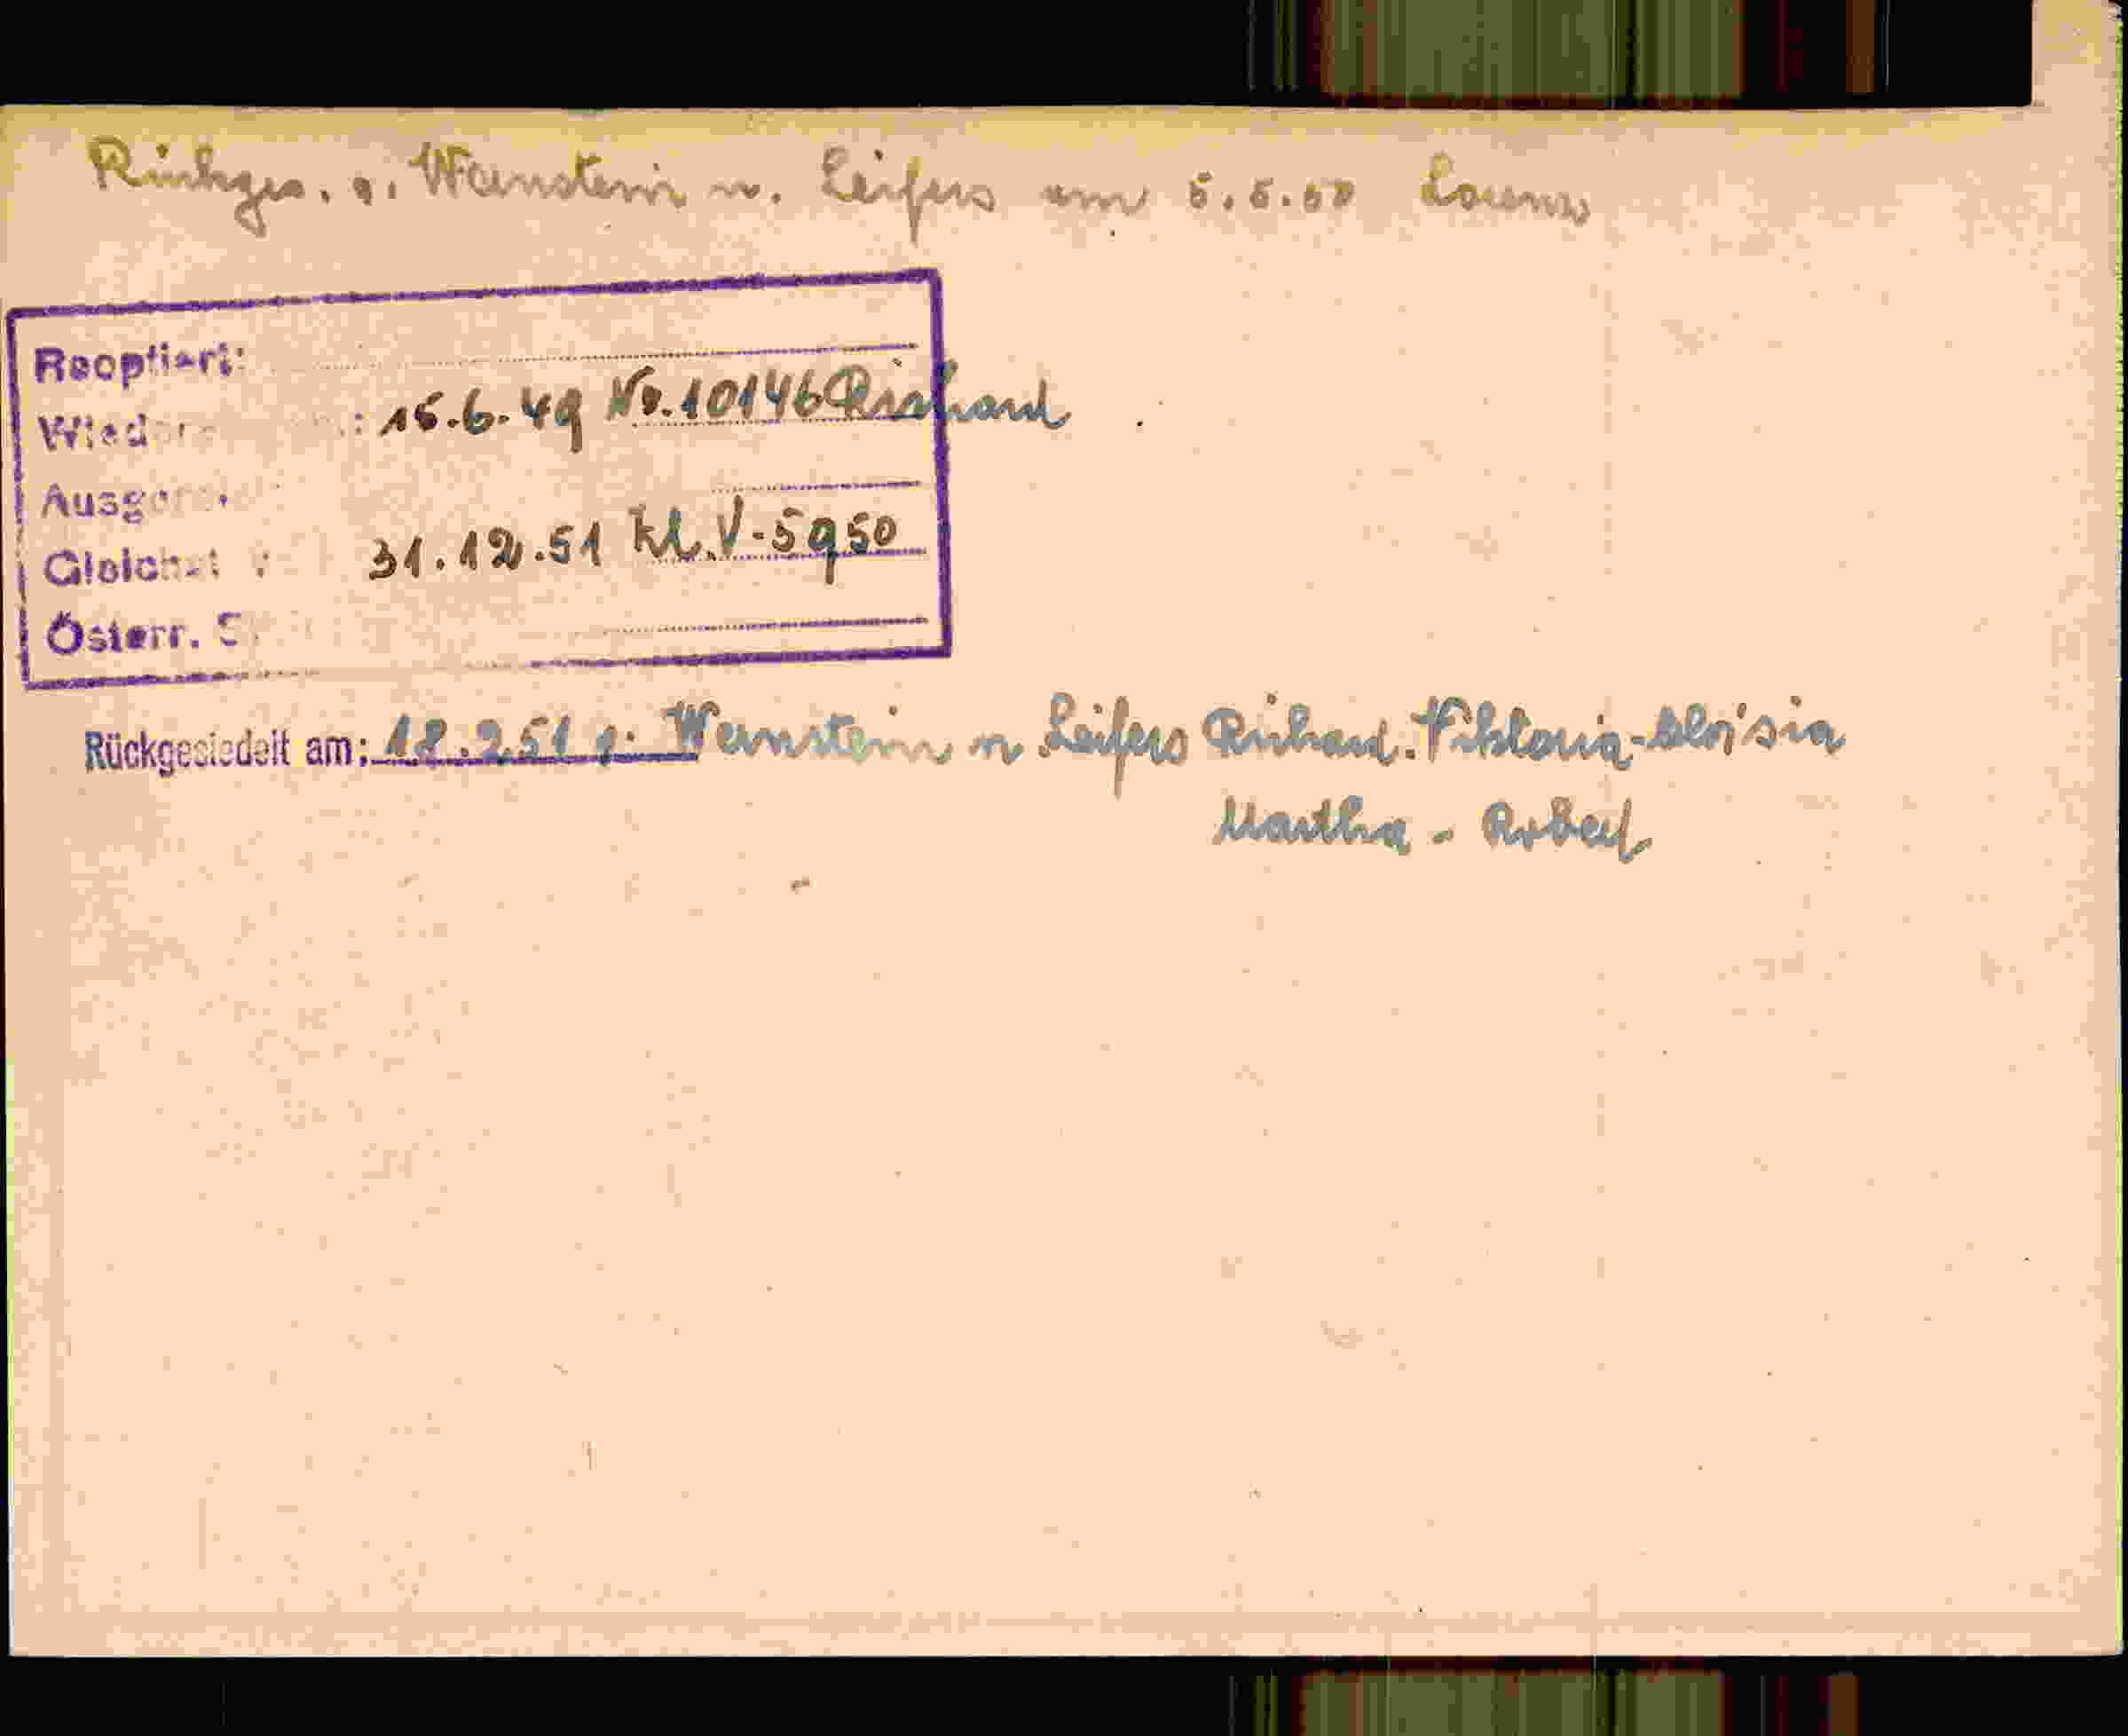 Rückges. v. Wernstein n. Leifers am 5.5.50 Lorenz
Reoptiert:
15.6.49 Nr. 10146 Richard
31.12.51 Kl. V-5950
Österr.
Rückgesiedelt am: 18.2.51 v. Wernstein n Leifers Richard. Viktoria-Aloisia
Martha - Robert